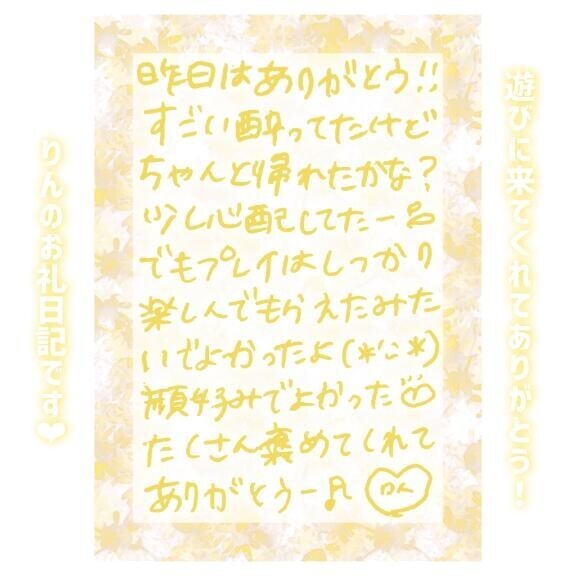 遊びに来てくれてありがとう！
昨日はありがとう!!
すごい酔ってたけど
ちゃんと帰れたかな?
少し心配してたー
でもプレイはしっかり
楽しんでもらえたみた
いでよかったよ(*'ㄩ'*)
顔好みでよかった
たくさん褒めてくれて
ありがとうー♪ りん
りんのお礼日記です❤